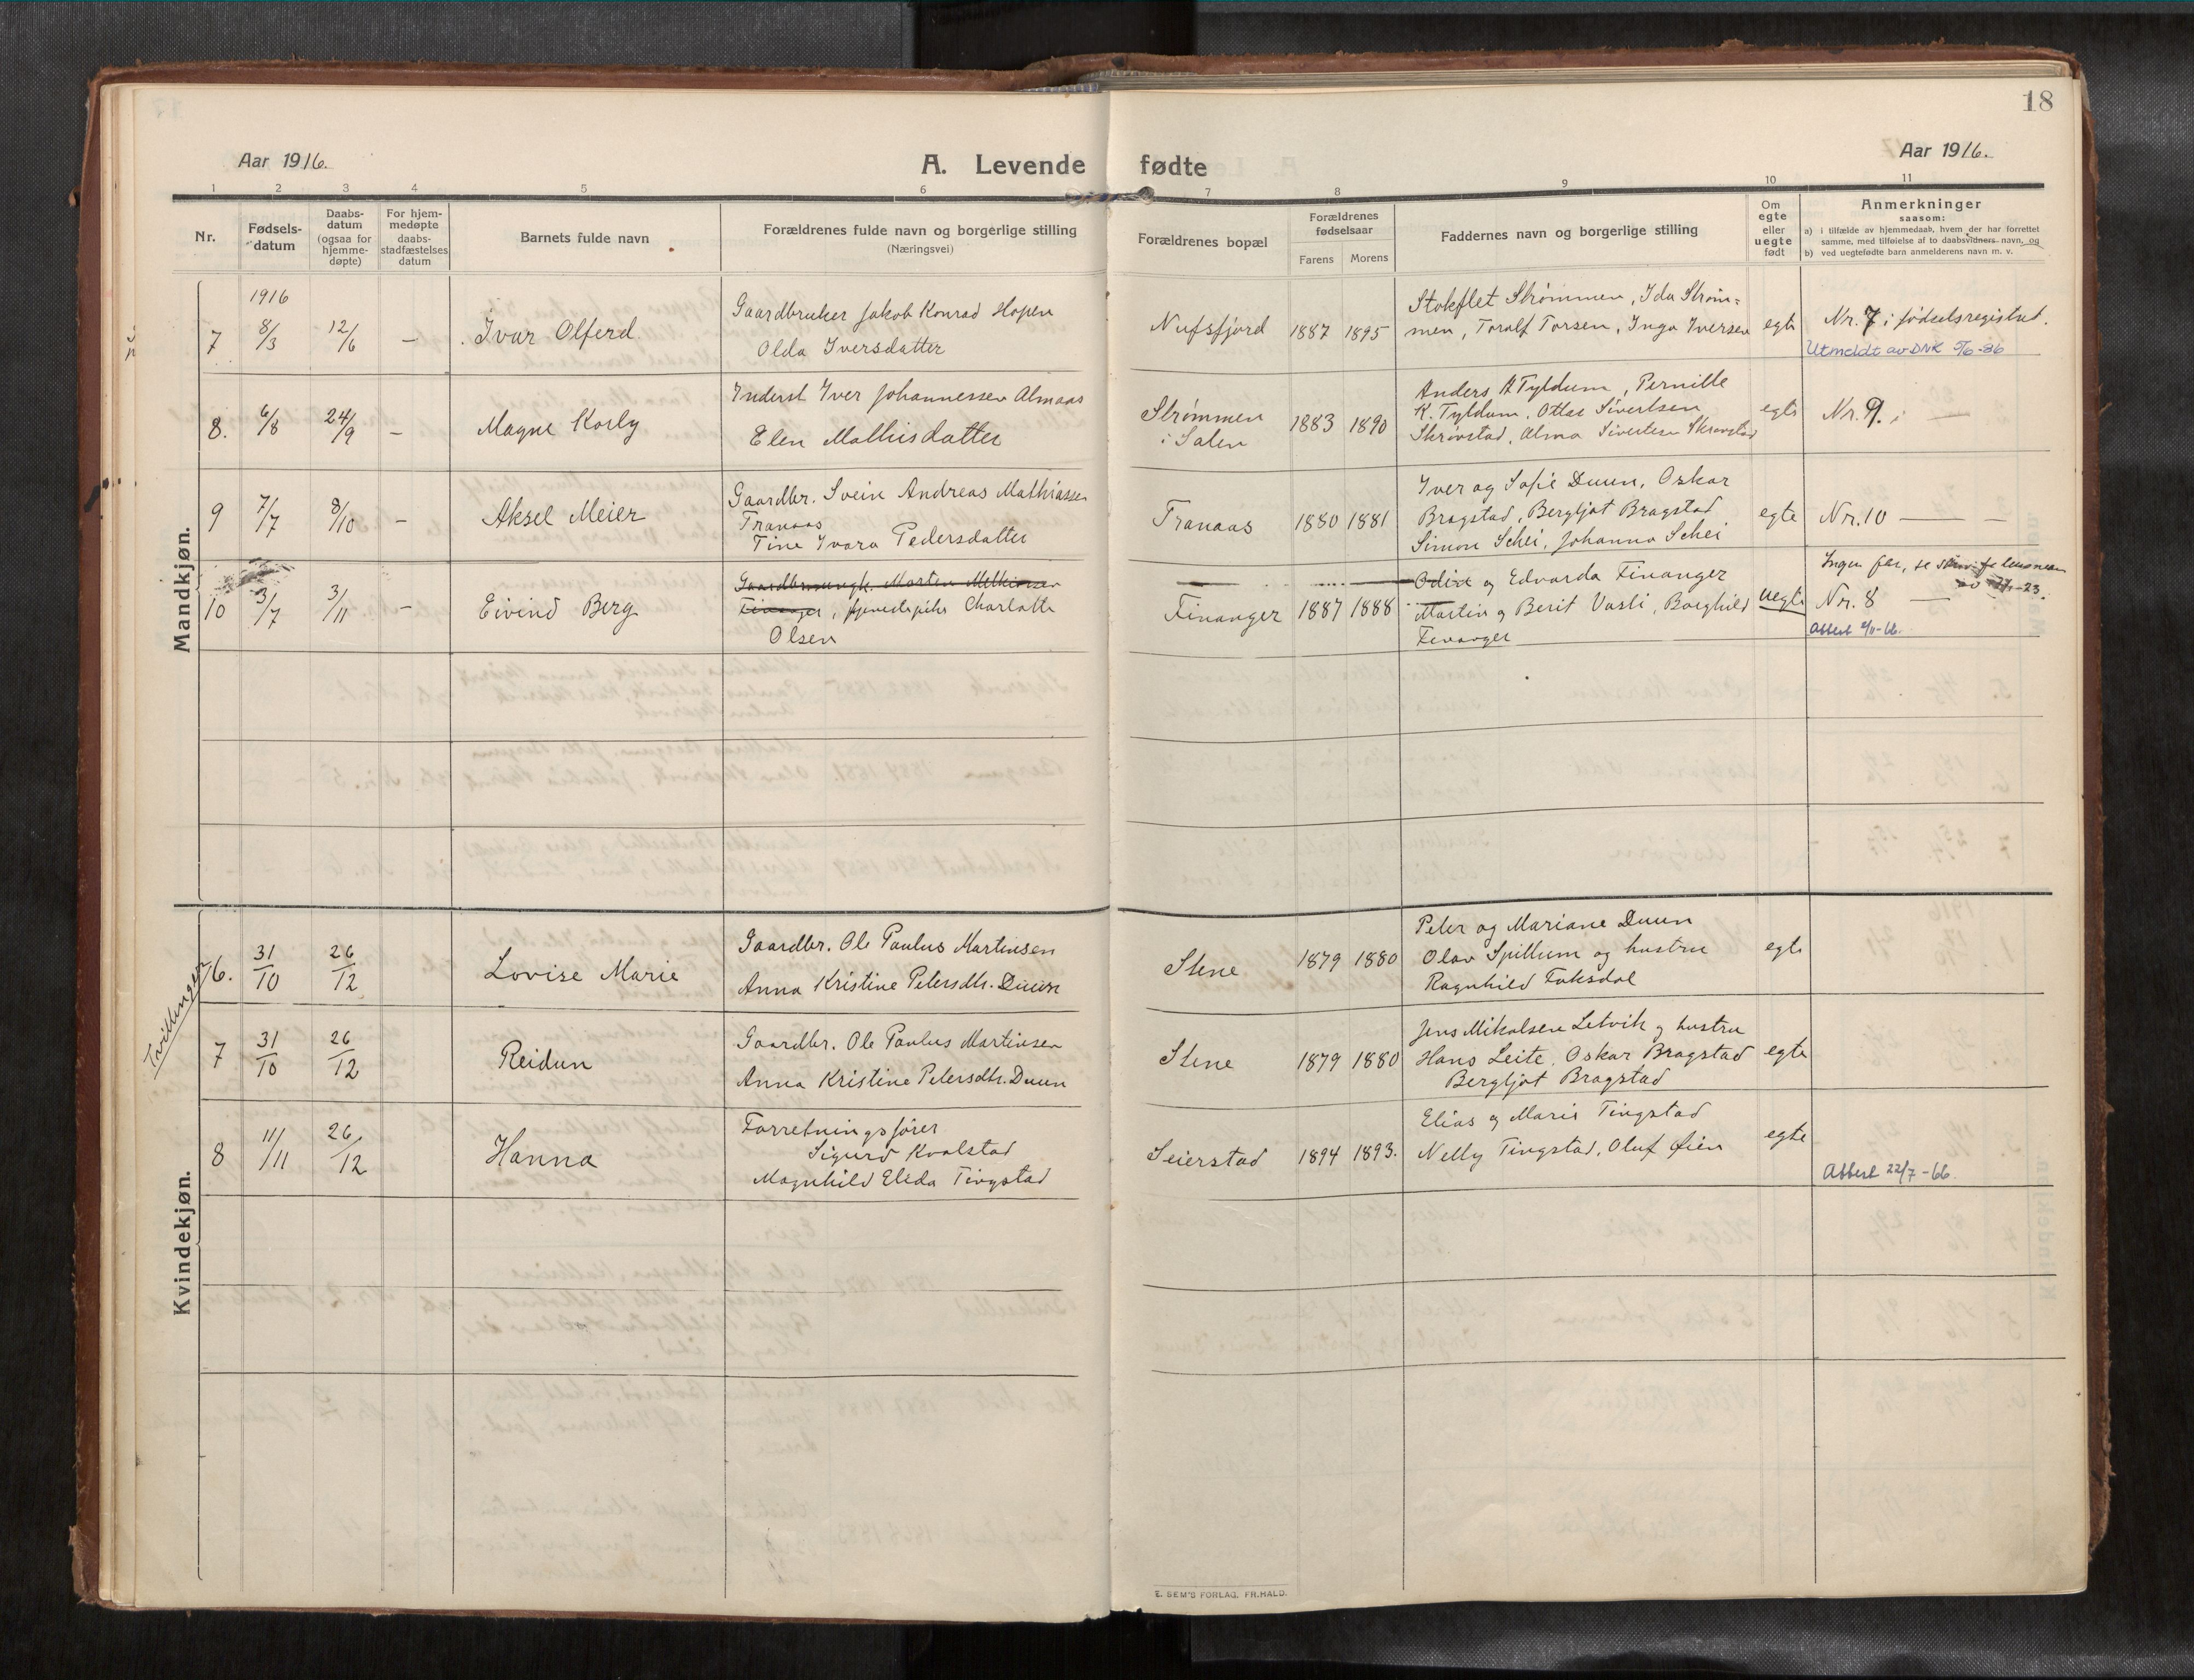 18
Aar 1916.
A. Levende fødte
Aar 1916.
1 2 3 4 5 6 7 8 9 10 11
Nr.
Fødsels-
datum
Daabs-
datum
(ogsaa for
hjemme-
døpte)
For hjem-
medøpte
daabs-
stadfæstelses
datum
Barnets fulde navn
Forældrenes fulde navn og borgerlige stilling
(Næringsvei)
Forældrenes bopæl
Forældrenes
fødselsaar
Farens Morens
Faddernes navn og borgerlige stilling
Om
egte
eller
uegte
født
Anmerkninger
saasom:
a) i tilfælde av hjemmedaab, hvem der har forrettet
samme, med tilføielse af to daabsvidners navn, og
b) ved uegtefødte barn anmelderens navn m. v.
Mandkjøn.
1916
7 8/3 12/6 – Ivar Olferd
Gaardbruker Jakob Konrad Hopen
Olda Iversdatter
Nufsfjord 1887 1895
Stokflet Strømmen, Ida Strøm-
men, Toralf Torsen, Inga Iversen
egte
Nr. 7 i fødselsregistret.
Utmeldt av DNK 5/6-36
8. 6/8 24/9 – Magne Korly
Inderst Iver Johannessen Almaas
Elen Mathisdatter
Strømmen
i Salen
1883 1890
Anders A Tyldum, Pernille
K. Tyldum, Ottar Sivertsen
Skrøvstad, Alma Sivertsen Skrøvstad
egte
Nr. 9. i —
9 7/7 8/10 – Aksel Meier
Gaardbr. Svein Andreas Mathiassen
Tranaas
Tine Ivara Pedersdatter
Tranaas 1880 1881
Iver og Sofie Duun, Oskar
Bragstad, Bergljot Bragstad
Simon Schei, Johanna Schei
egte
Nr. 10 — –
10 3/7 3/11 – Eivind Berg
Gaardbrungk. Morten Melkiorsen
Finanger, tjenestepike Charlotte
Olsen
Finanger 1887 1888
Odin og Edvarda Finanger
Martin og Berit Vasli, Borghild
Finanger
uegte
Ingen far, se
Nr. 8 —
Attest 2/11-66.
Kvindekjøn.
Tvillinger
6. 31/10 26/12 Lovise Marie
Gaardbr. Ole Paulus Martinsen
Anna Kristine Petersdtr. Duun
Stene 1879 1880
Peter og Mariane Duun
Olav Spillum og hustru
Ragnhild Faksdal
egte
7 31/10 26/12 Reidun
Gaardbr. Ole Paulus Martinsen
Anna Kristine Petersdtr. Duun
Stene 1879 1880
Jens Mikalsen Letvik og hustru
Hans Leite, Oskar Bragstad
Bergljot Bragstad
egte
8 11/11 26/12 Hanna
Forretningsfører
Sigurd Kvalstad
Magnhild Elida Tingstad
Seierstad 1894 1893.
Elias og Marie Tingstad
Nelly Tingstad, Oluf Øien
egte
Attest 22/7-66.
E. SEM'S FORLAG, FR.HALD.